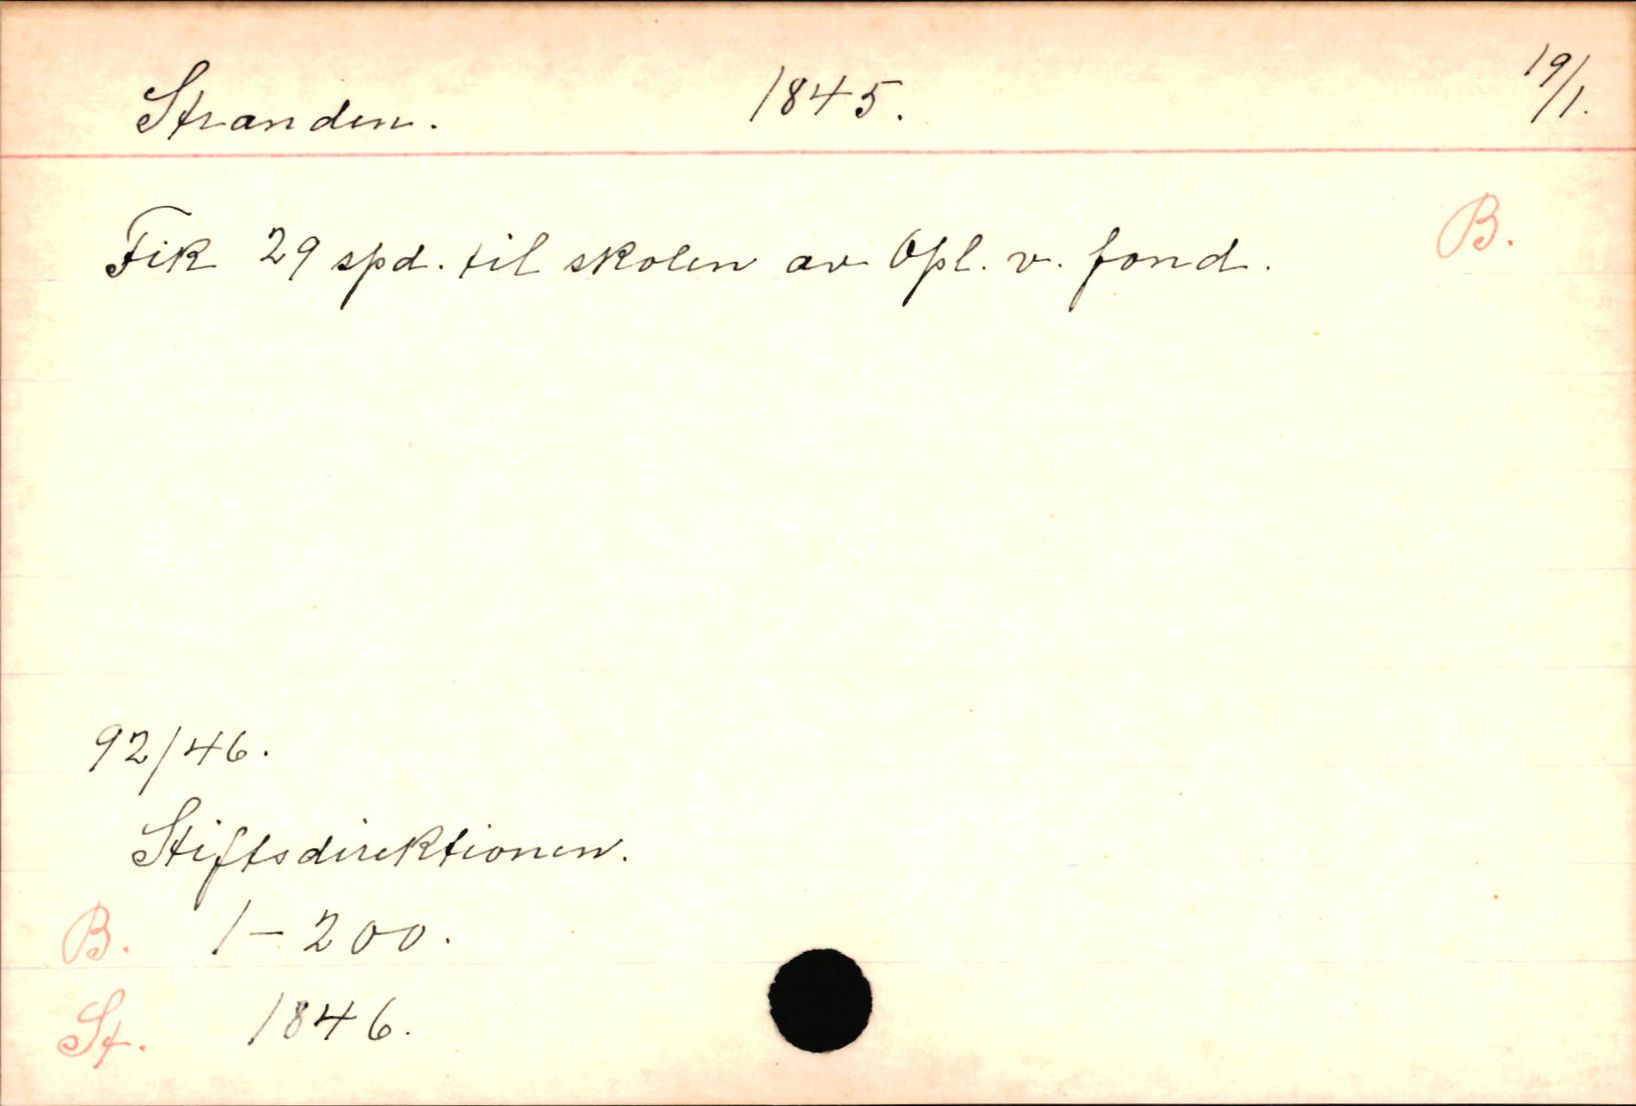 Stranden. 1845. 19/1.
Fik 29 spd. til skolen av Opl. v. fond. B.
92/46.
Stiftsdirektionen.
B. 1-200.
St. 1846.